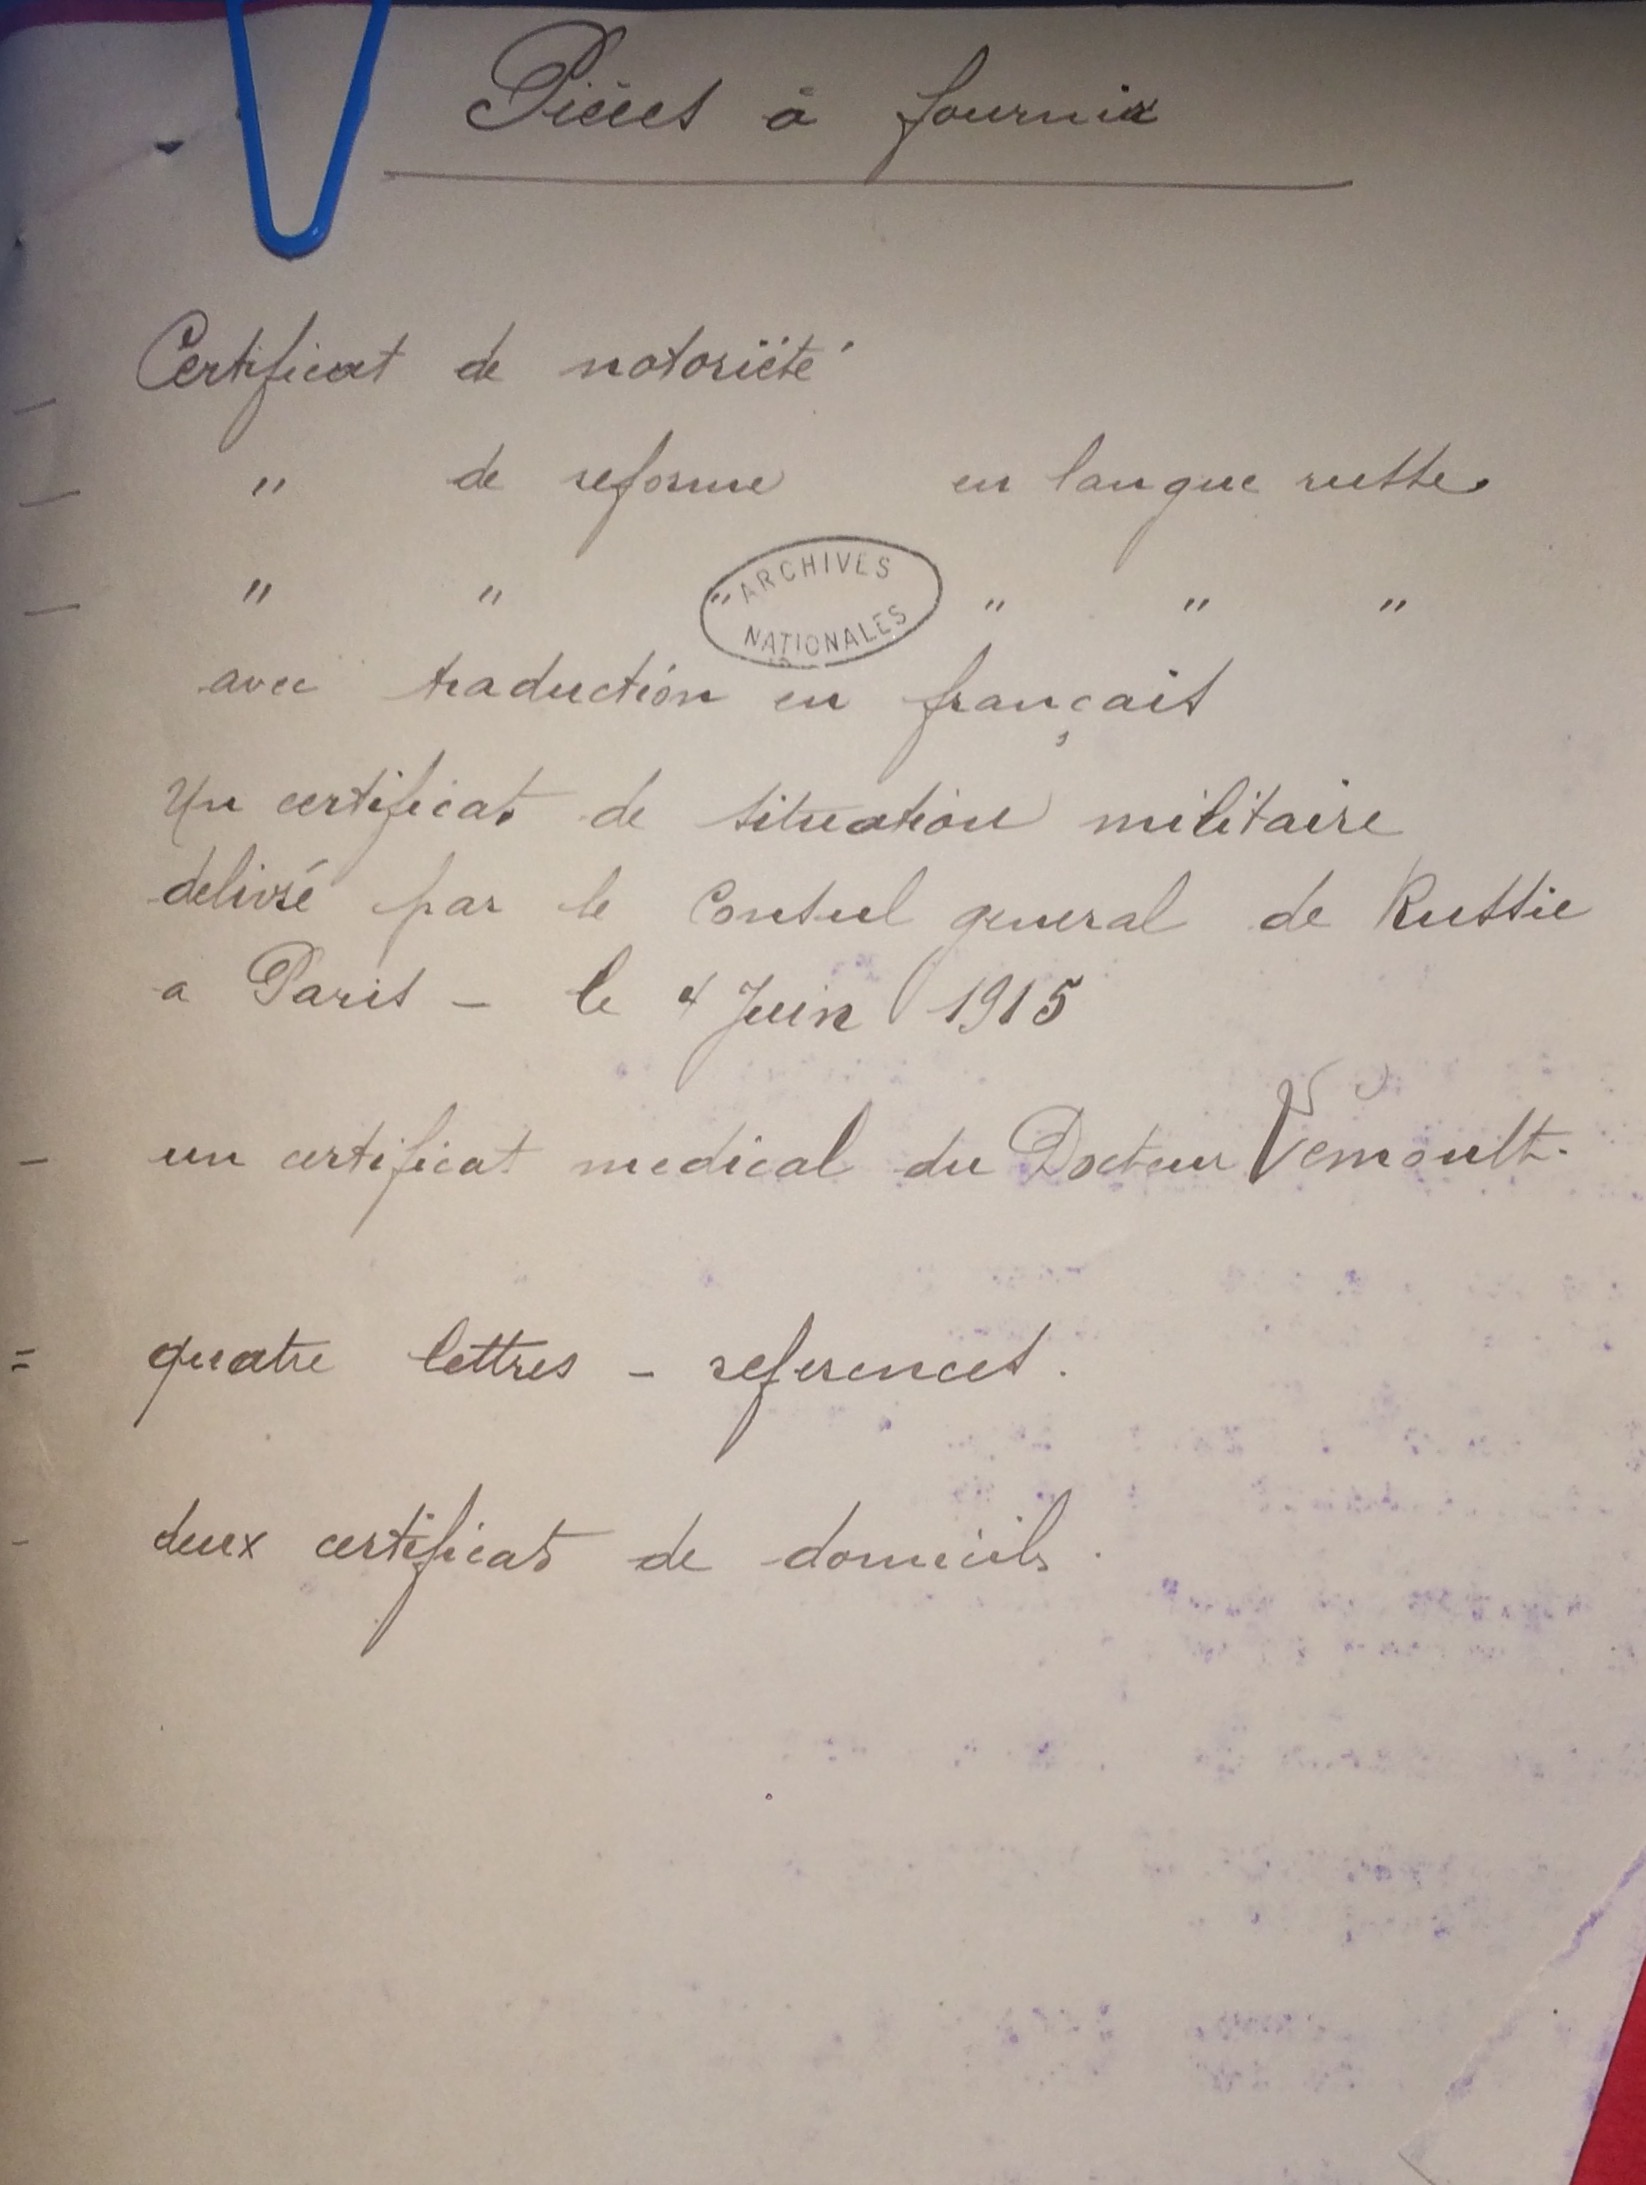 Pièces à fournir
Certificat de notoriété
— " de reforme en langue russe
— " " " " " "
ARCHIVES
NATIONALES
avec traduction en français
Un certificat de situation militaire
delivré par le Consul general de Russie
a Paris – le 4 Juin 1915
– un certificat medical du Docteur
= quatre lettres – references.
- deux certificat de domicils.